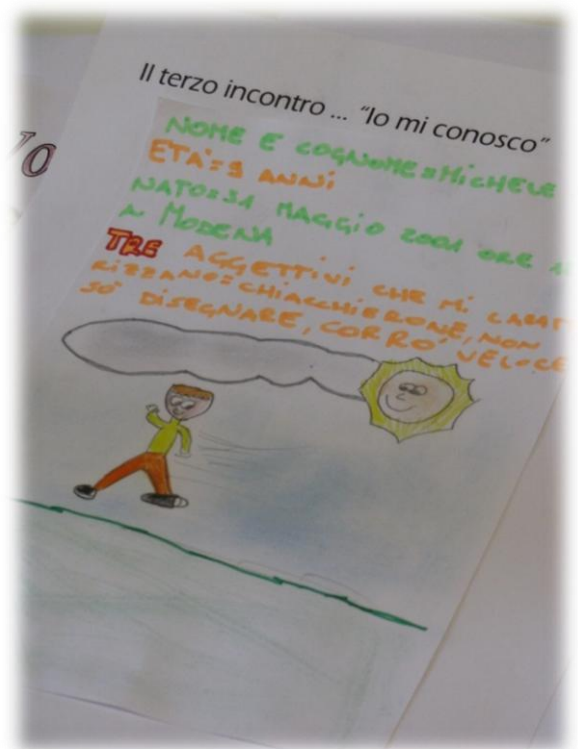 Il terzo incontro ... "Io mi conosco"
NOME E COGNOME=MICHELE
ETÀ=9 ANNI
NATO=31 MAGGIO 2001 ORE
A MODENA
TRE AGGETTIVI CHE MI CARAT
RIZZANO=CHIACCHIERONE, NON
SO' DISEGNARE, CORRO VELOCE